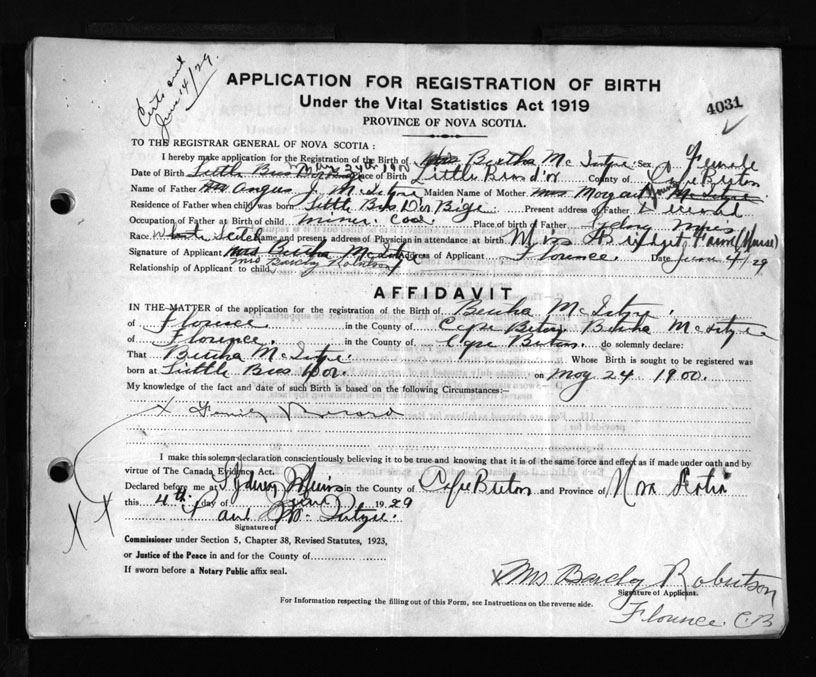 Certs sent
June 14/29
APPLICATION FOR REGISTRATION OF BIRTH
Under the Vital Statistics Act 1919
4031
PROVINCE OF NOVA SCOTIA.
TO THE REGISTRAR GENERAL OF NOVA SCOTIA:
I hereby make application for the Registration of the Birth of Bertha McIntyre. Sex Female
Date of Birth May 24th Little Bras d'or County of Cape Breton
Name of Father Angus J. McIntyre Maiden Name of Mother
Residence of Father when child was born Little Bras Dor Present address of Father
Occupation of Father at Birth of child miner. Coal Place of birth of Father Sydney Mines
Race Scotch Name and present address of Physician in attendance at birth Bridget (Nurse)
Signature of Applicant Mrs Bertha McIntyre Address of Applicant Florence. Date June 4/29
Mrs Robertson
Relationship of Applicant to child
AFFIDAVIT
IN THE MATTER of the application for the registration of the Birth of Bertha McIntyre.
of Florence. in the County of Cape Breton Bertha McIntyre
of Florence. in the County of Cape Breton. do solemnly declare:
That Bertha McIntyre. Whose Birth is sought to be registered was
born at Little Bras Dor. on May 24 1900.
My knowledge of the fact and date of such Birth is based on the following Circumstances:
x Family Record
I make this solemn declaration conscientiously believing it to be true and knowing that it is of the same force and effect as if made under oath and by
virtue of The Canada Evidence Act.
Declared before me at Sydney Mines in the County of Cape Breton and Province of Nova Scotia
this 4th day of June 1929
McIntyre.
Signature of
Commissioner under Section 5, Chapter 38, Revised Statutes, 1923,
or Justice of the Peace in and for the County of
If sworn before a Notary Public affix seal.
x Mrs Robertson
Signature of Applicant.
For Information respecting the filling out of this Form, see Instructions on the reverse side.
Florence. C.B